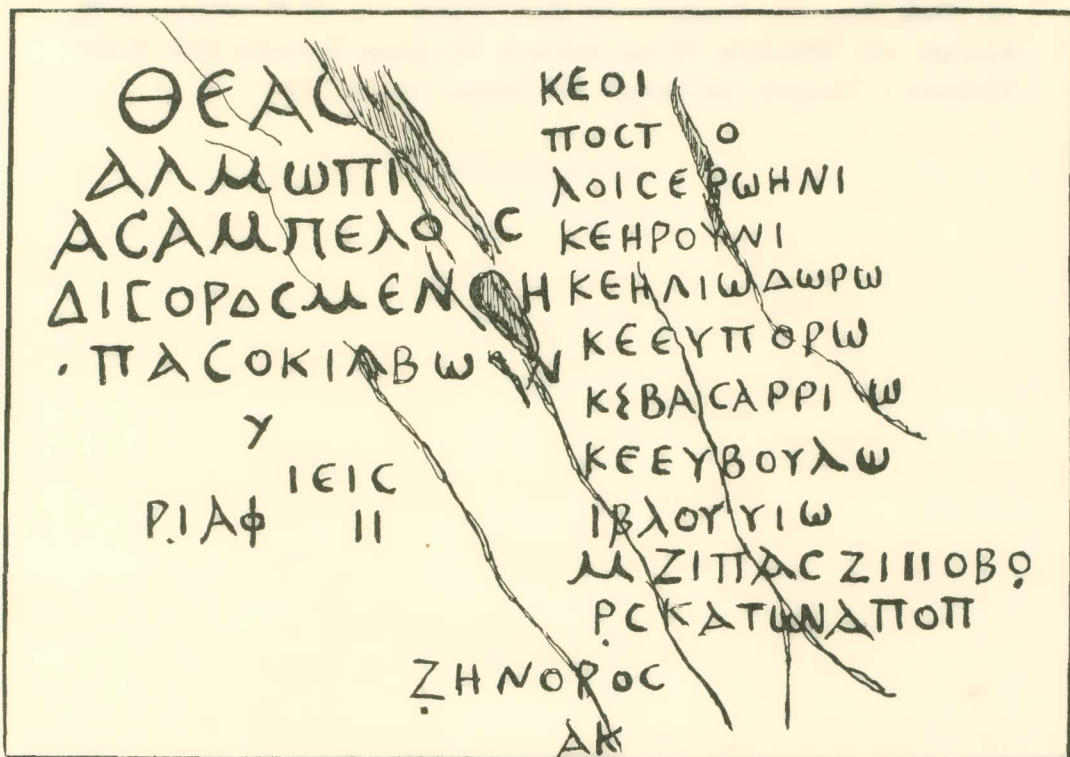 ΘΕΑC
ΑΛΜωΠΙ
ΑCΑΜΠΕΛΟ C
ΔΙΓΟΡΔCΜΕΝΘΗ
·ΠΑCΟΚΙΛΒω Ν
Υ
ΙΕΙC
ΡΙΑΦ ΙΙ
ΚΕΟΙ
ΠΟCΤ Ο
ΛΟΙCΕΡωΗΝΙ
ΚΕΗΡΟΥΝΙ
ΚΕΗΛΙωΔωΡω
ΚΕΕΥΠΟΡω
ΚΕΒΑCΑΡΡΙω
ΚΕΕΥΒΟΥΛω
ΙΒΛΟΥΥΙω
Μ ΖΙΠΑC ΖΙΠΟΒΟ
ΡCΚΑΤωΝΑΠΟΠ
ΖΗΝΟΡΟC
ΑΚ